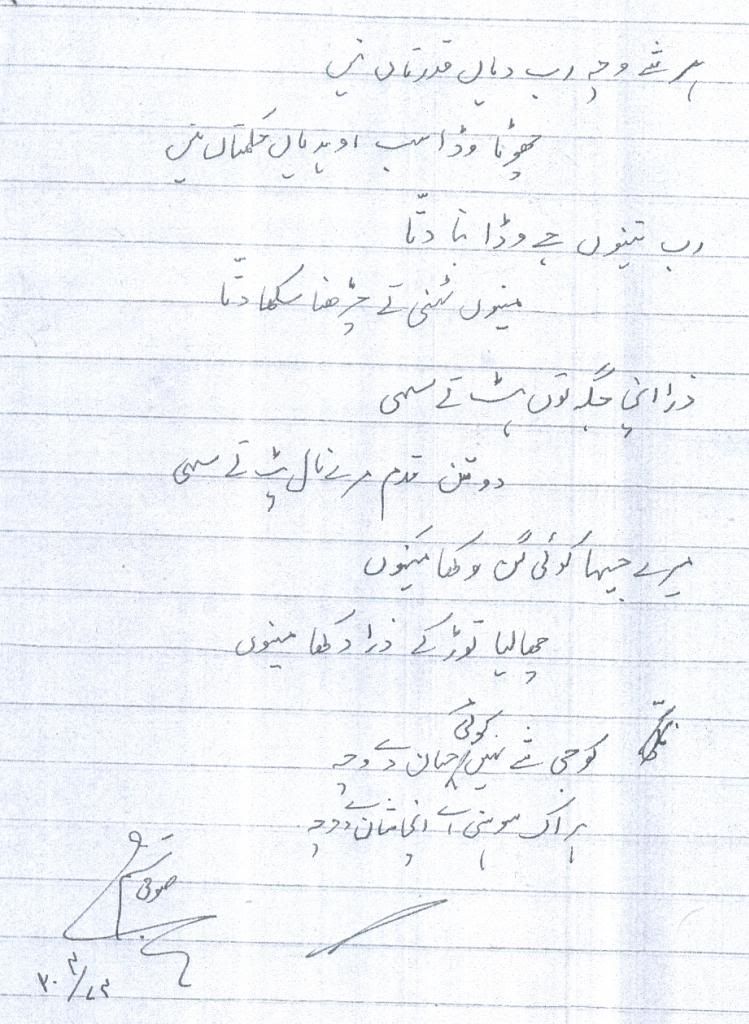 ہر شے وچ رب دیاں قدرتاں نیں
چھوٹا وڈا سب اوہدیاں حکمتاں نیں
رب تینوں جے وڈا بنا دتّا
مینوں ٹہنی تے چڑھنا سکھا دتّا
ذرا اپنی جگہ توں ہٹ تے سہی
دو تن قدم مرے نال پٹ تے سہی
میرے جیہا کوئی گن وکھا مینوں
چھالیا توڑ کے ذرا دکھا مینوں
کوجی شے نہیں کوئی جہان دے وچ
ہر اک سوہنی اے اپنی شان دے وچ
صوفی تبسم
۳۰/۳/۷۳